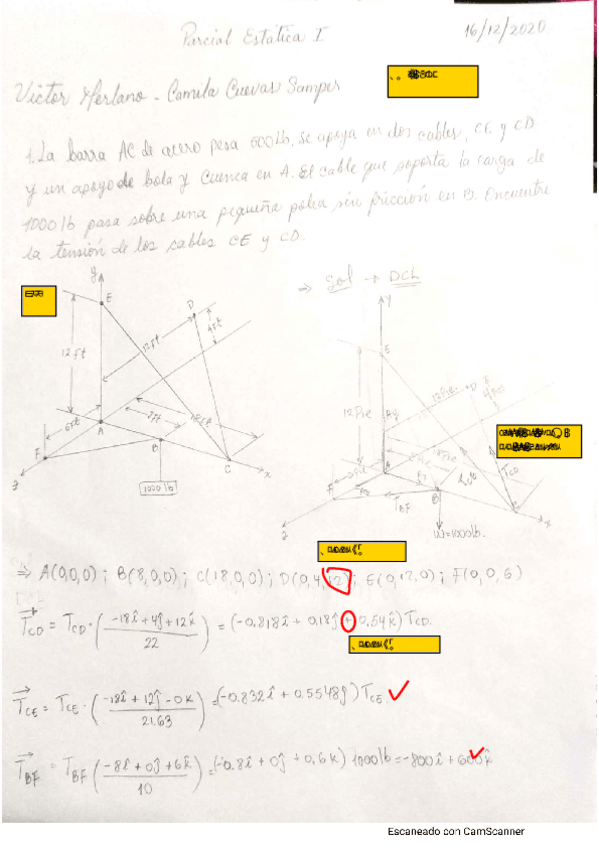 Parcial Estática I
16/12/2020
Victor Merlano - Camila Cuevas Samper
1. La barra AC de acero pesa 500 Lb, se apoya en dos cables, CE y CD
y un apoyo de bola y Cuenca en A. El cable que soporta la carga de
1000 lb pasa sobre una pequeña polea sin fricción en B. Encuentre
la tensión de los cables CE y CD.
⇒ Sol → DCL
y
E
D
12ft
12ft
4ft
6ft
7ft
18ft
F
A
B
C
z
x
1000 lb
y
12Pie
12Pie
D
4Pies
F
T_CD
T_BF
B
W=1000lb.
z
x
⇒ A(0,0,0) ; B(8,0,0) ; C(18,0,0) ; D(0,4,12) ; E(0,12,0) ; F(0,0,6)
T_CD = T_CD · ( (-18î + 4ĵ + 12k̂) / 22 ) = (-0.818î + 0.18ĵ + 0.54k̂) T_CD.
T_CE = T_CE · ( (-18î + 12ĵ - 0k) / 21.63 ) = (-0.832î + 0.5548ĵ) T_CE
T_BF = T_BF ( (-8î + 0ĵ + 6k̂) / 10 ) = (-0.8î + 0ĵ + 0.6k) 1000lb = -800î + 600k̂
Escaneado con CamScanner